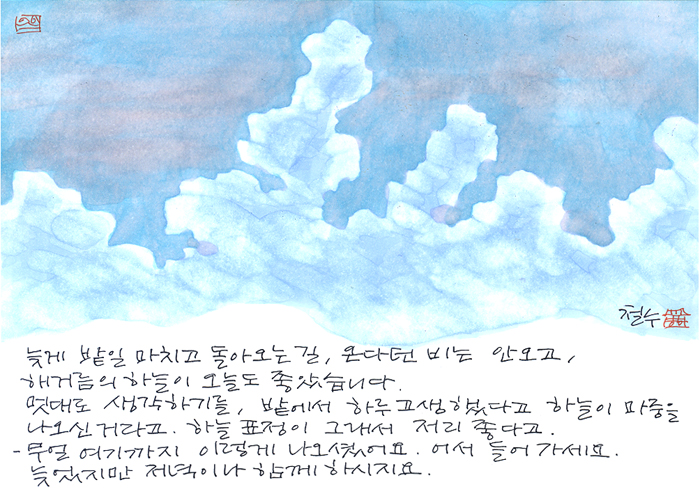 철수
늦게 밭일 마치고 돌아오는길, 온다던 비는 안오고,
해거름의 하늘이 오늘도 좋았습니다.
멋대로 생각하기를, 밭에서 하루 고생했다고 하늘이 마중을
나오신거라고. 하늘 표정이 그래서 저리 좋다고.
- 무얼 여기까지 이렇게 나오셨어요. 어서 들어가세요.
늦었지만 저녁이나 함께 하시지요.